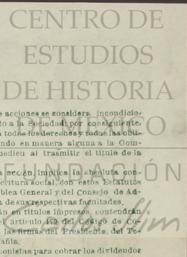 CENTRO DE
ESTUDIOS
DE HISTORIA
DE MÉXICO
e acciones se considera incondicio-
to a la Sociedad por consiguiente,
todos los derechos y todas las obli-
endo en manera alguna a la Com-
medieu al trasmitir el titulo de la
FUNDACIÓN
a acción, implica la absoluta con-
critura social, con estos Estatutos
blea General y del Consejo de Ad-
de sus respectivas facultades.
án en titulos impresos, contendrán
el articulo 179 del Código de Co-
las firmas del Presidente, del Te-
añia.
onistas para cobrar los dividendos